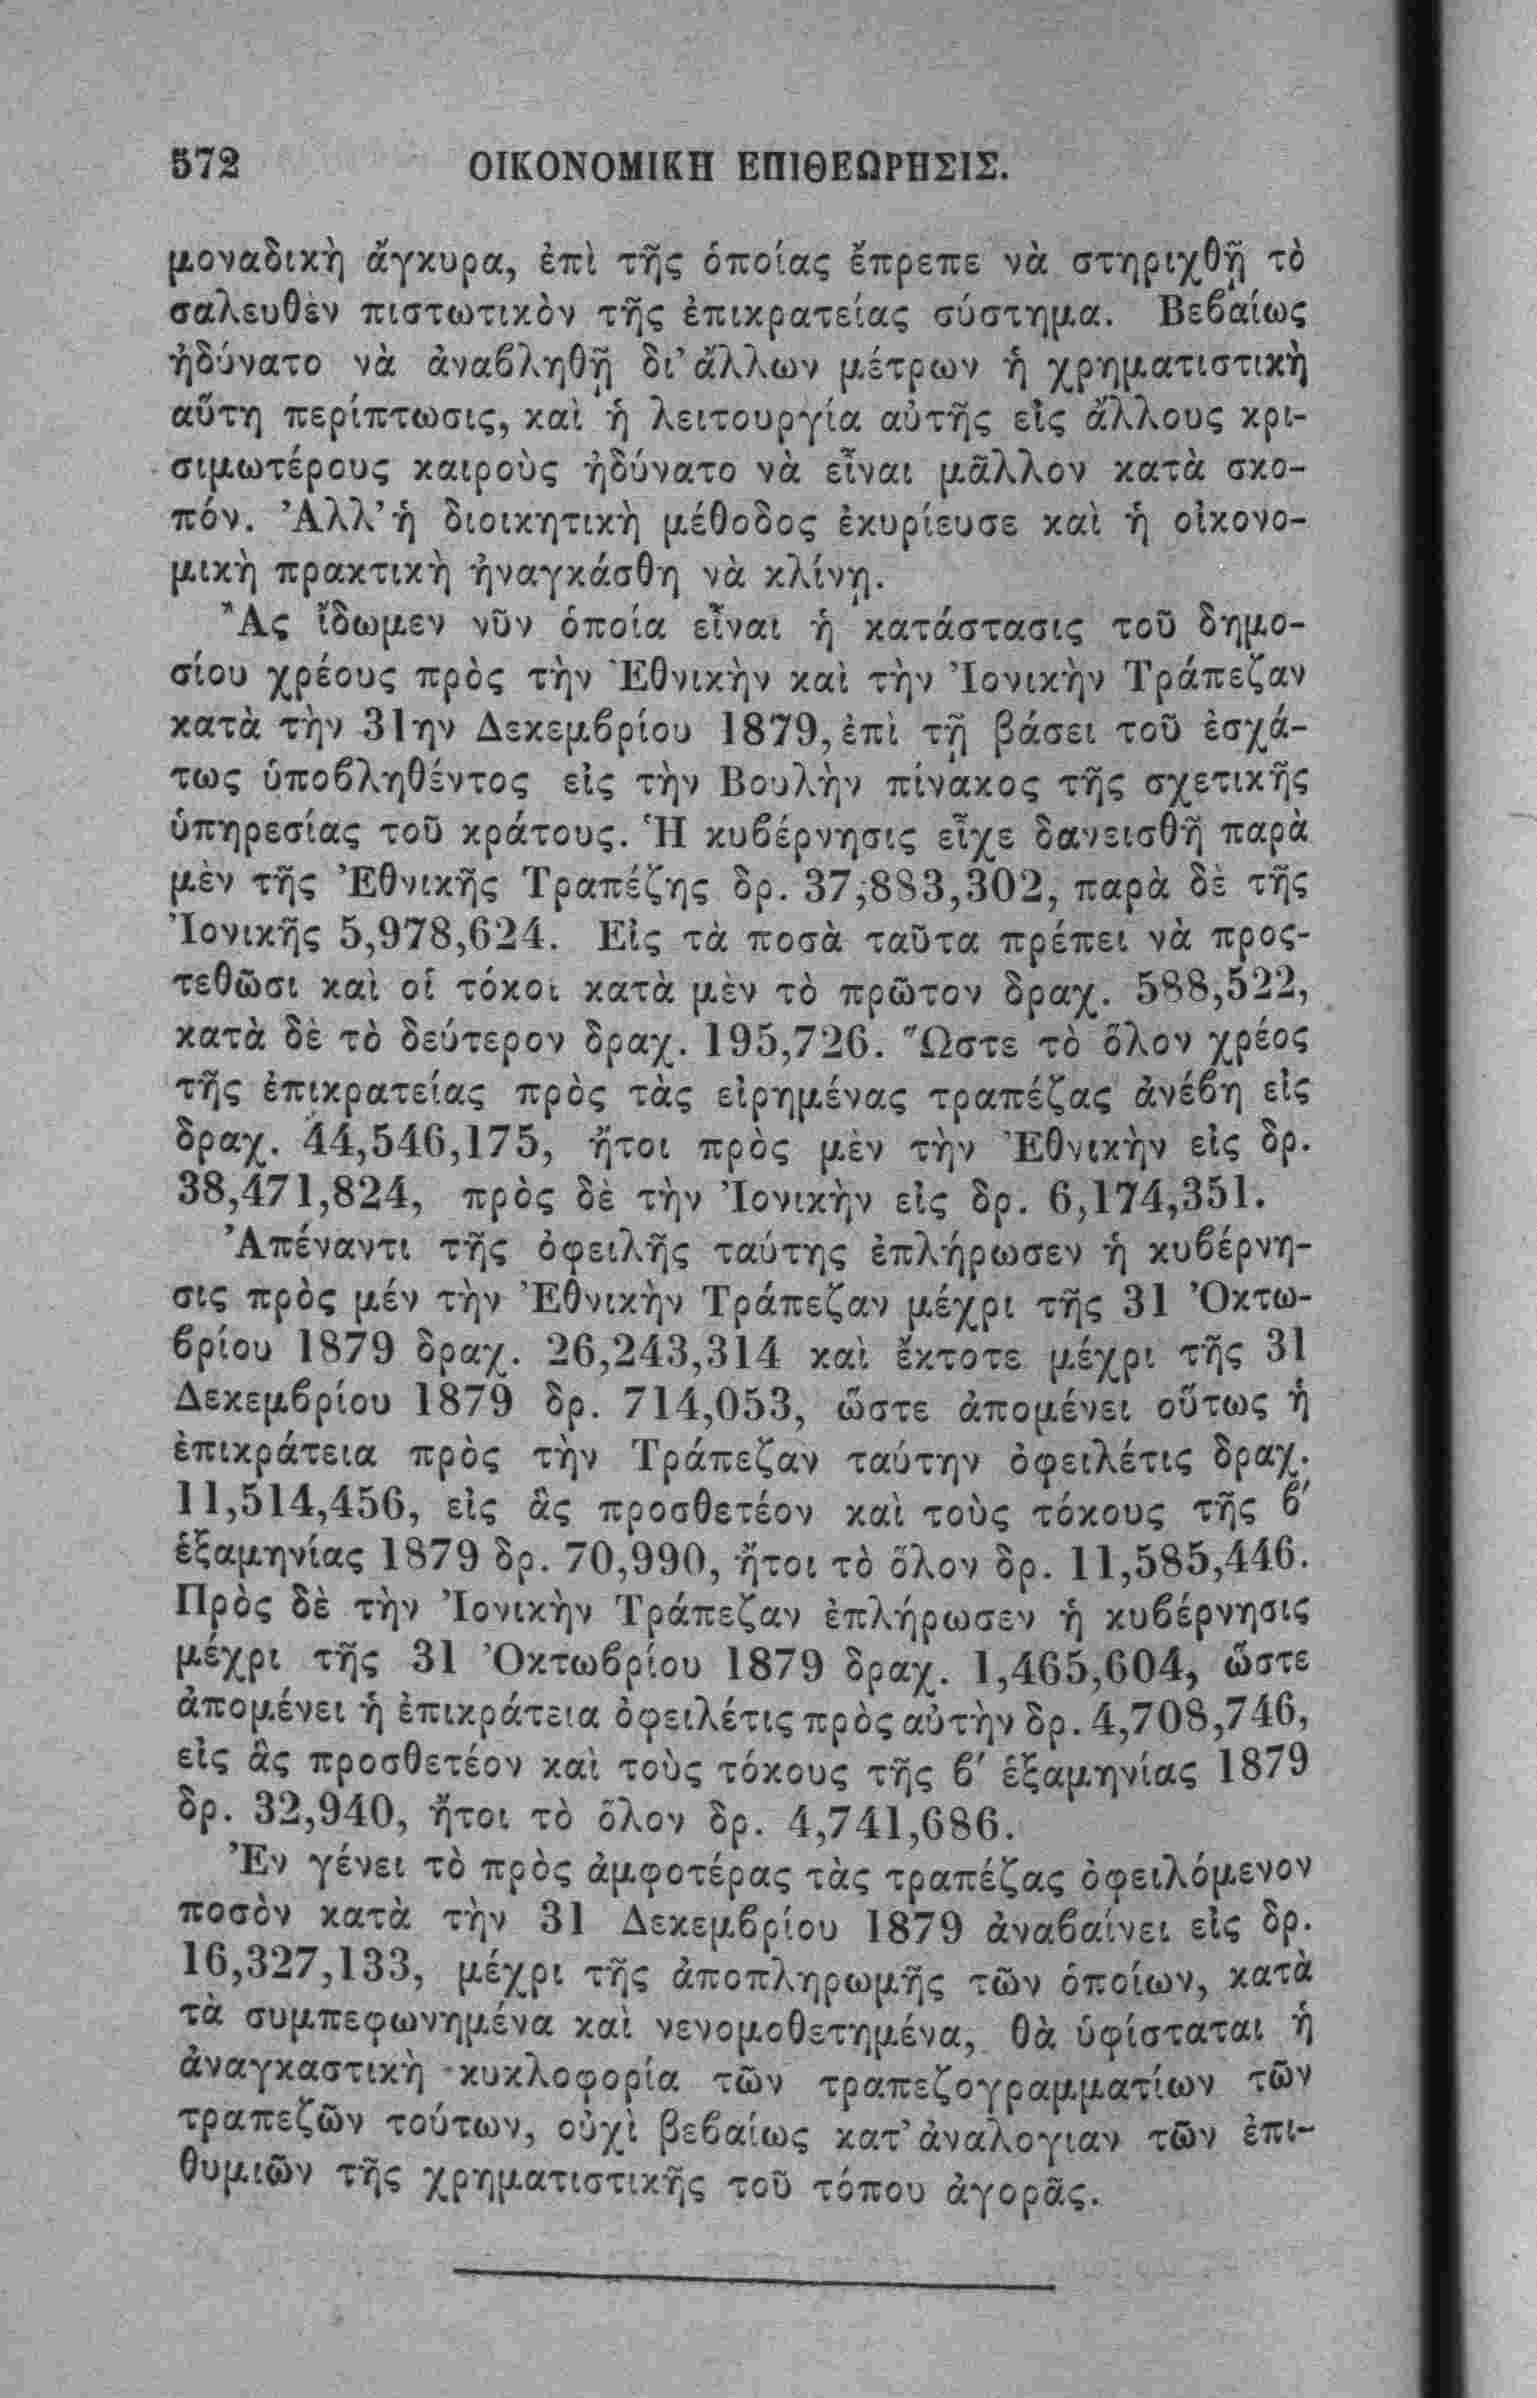 572 ΟΙΚΟΝΟΜΙΚΗ ΕΠΙΘΕΩΡΗΣΙΣ.
μοναδικὴ ἄγκυρα, ἐπὶ τῆς ὁποίας ἔπρεπε νὰ στηριχθῇ τὸ
σαλευθὲν πιστωτικὸν τῆς ἐπικρατείας σύστημα. Βεβαίως
ἠδύνατο νὰ ἀναβληθῇ δι' ἄλλων μέτρων ἡ χρηματιστικὴ
αὕτη περίπτωσις, καὶ ἡ λειτουργία αὐτῆς εἰς ἄλλους κρι-
σιμωτέρους καιροὺς ἠδύνατο νὰ εἶναι μᾶλλον κατὰ σκο-
πόν. Ἀλλ' ἡ διοικητικὴ μέθοδος ἐκυρίευσε καὶ ἡ οἰκονο-
μικὴ πρακτικὴ ἠναγκάσθη νὰ κλίνῃ.
Ἂς ἴδωμεν νῦν ὁποία εἶναι ἡ κατάστασις τοῦ δημο-
σίου χρέους πρὸς τὴν Ἐθνικὴν καὶ τὴν Ἰονικὴν Τράπεζαν
κατὰ τὴν 31ην Δεκεμβρίου 1879, ἐπὶ τῇ βάσει τοῦ ἐσχά-
τως ὑποβληθέντος εἰς τὴν Βουλὴν πίνακος τῆς σχετικῆς
ὑπηρεσίας τοῦ κράτους. Ἡ κυβέρνησις εἶχε δανεισθῆ παρὰ
μὲν τῆς Ἐθνικῆς Τραπέζης δρ. 37,883,302, παρὰ δὲ τῆς
Ἰονικῆς 5,978,624. Εἰς τὰ ποσὰ ταῦτα πρέπει νὰ προς-
τεθῶσι καὶ οἱ τόκοι κατὰ μὲν τὸ πρῶτον δραχ. 588,522,
κατὰ δὲ τὸ δεύτερον δραχ. 195,726. Ὥστε τὸ ὅλον χρέος
τῆς ἐπικρατείας πρὸς τὰς εἰρημένας τραπέζας ἀνέβη εἰς
δραχ. 44,546,175, ἤτοι πρὸς μὲν τὴν Ἐθνικὴν εἰς δρ.
38,471,824, πρὸς δὲ τὴν Ἰονικὴν εἰς δρ. 6,174,351.
Ἀπέναντι τῆς ὀφειλῆς ταύτης ἐπλήρωσεν ἡ κυβέρνη-
σις πρὸς μέν τὴν Ἐθνικὴν Τράπεζαν μέχρι τῆς 31 Ὀκτω-
βρίου 1879 δραχ. 26,243,314 καὶ ἔκτοτε μέχρι τῆς 31
Δεκεμβρίου 1879 δρ. 714,053, ὥστε ἀπομένει οὕτως ἡ
ἐπικράτεια πρὸς τὴν Τράπεζαν ταύτην ὀφειλέτις δραχ.
11,514,456, εἰς ἃς προσθετέον καὶ τοὺς τόκους τῆς β′
ἑξαμηνίας 1879 δρ. 70,990, ἤτοι τὸ ὅλον δρ. 11,585,446.
Πρὸς δὲ τὴν Ἰονικὴν Τράπεζαν ἐπλήρωσεν ἡ κυβέρνησις
μέχρι τῆς 31 Ὀκτωβρίου 1879 δραχ. 1,465,604, ὥστε
ἀπομένει ἡ ἐπικράτεια ὀφειλέτις πρὸς αὐτὴν δρ. 4,708,746,
εἰς ἃς προσθετέον καὶ τοὺς τόκους τῆς β′ ἑξαμηνίας 1879
δρ. 32,940, ἤτοι τὸ ὅλον δρ. 4,741,686.
Ἐν γένει τὸ πρὸς ἀμφοτέρας τὰς τραπέζας ὀφειλόμενον
ποσὸν κατὰ τὴν 31 Δεκεμβρίου 1879 ἀναβαίνει εἰς δρ.
16,327,133, μέχρι τῆς ἀποπληρωμῆς τῶν ὁποίων, κατὰ
τὰ συμπεφωνημένα καὶ νενομοθετημένα, θὰ ὑφίσταται ἡ
ἀναγκαστικὴ κυκλοφορία τῶν τραπεζογραμματίων τῶν
τραπεζῶν τούτων, οὐχὶ βεβαίως κατ' ἀναλογιαν τῶν ἐπι-
θυμιῶν τῆς χρηματιστικῆς τοῦ τόπου ἀγορᾶς.